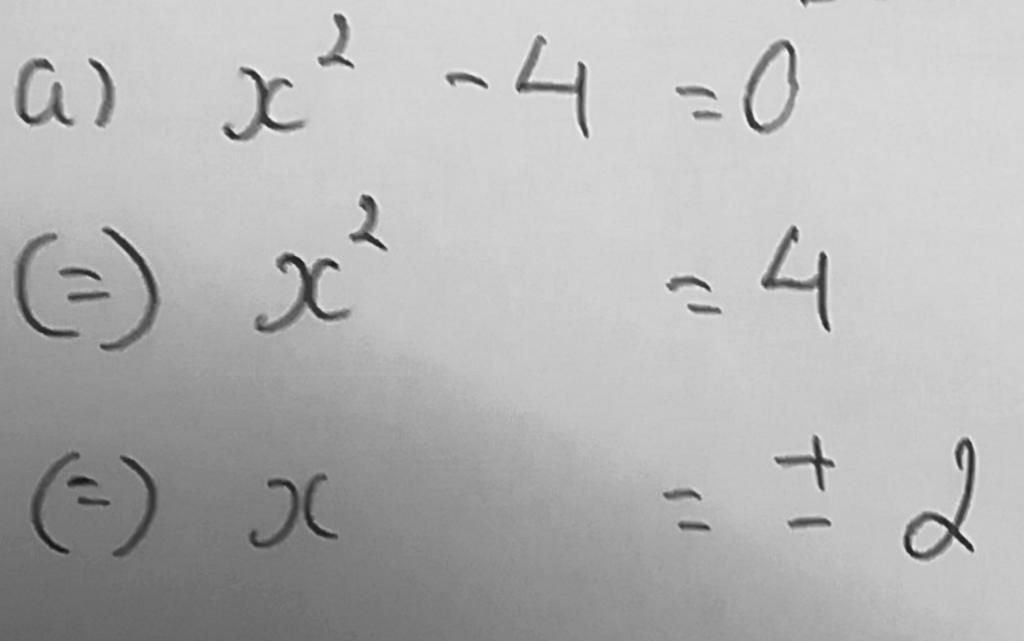 a) x² - 4 = 0
(=) x² = 4
(=) x = ± 2